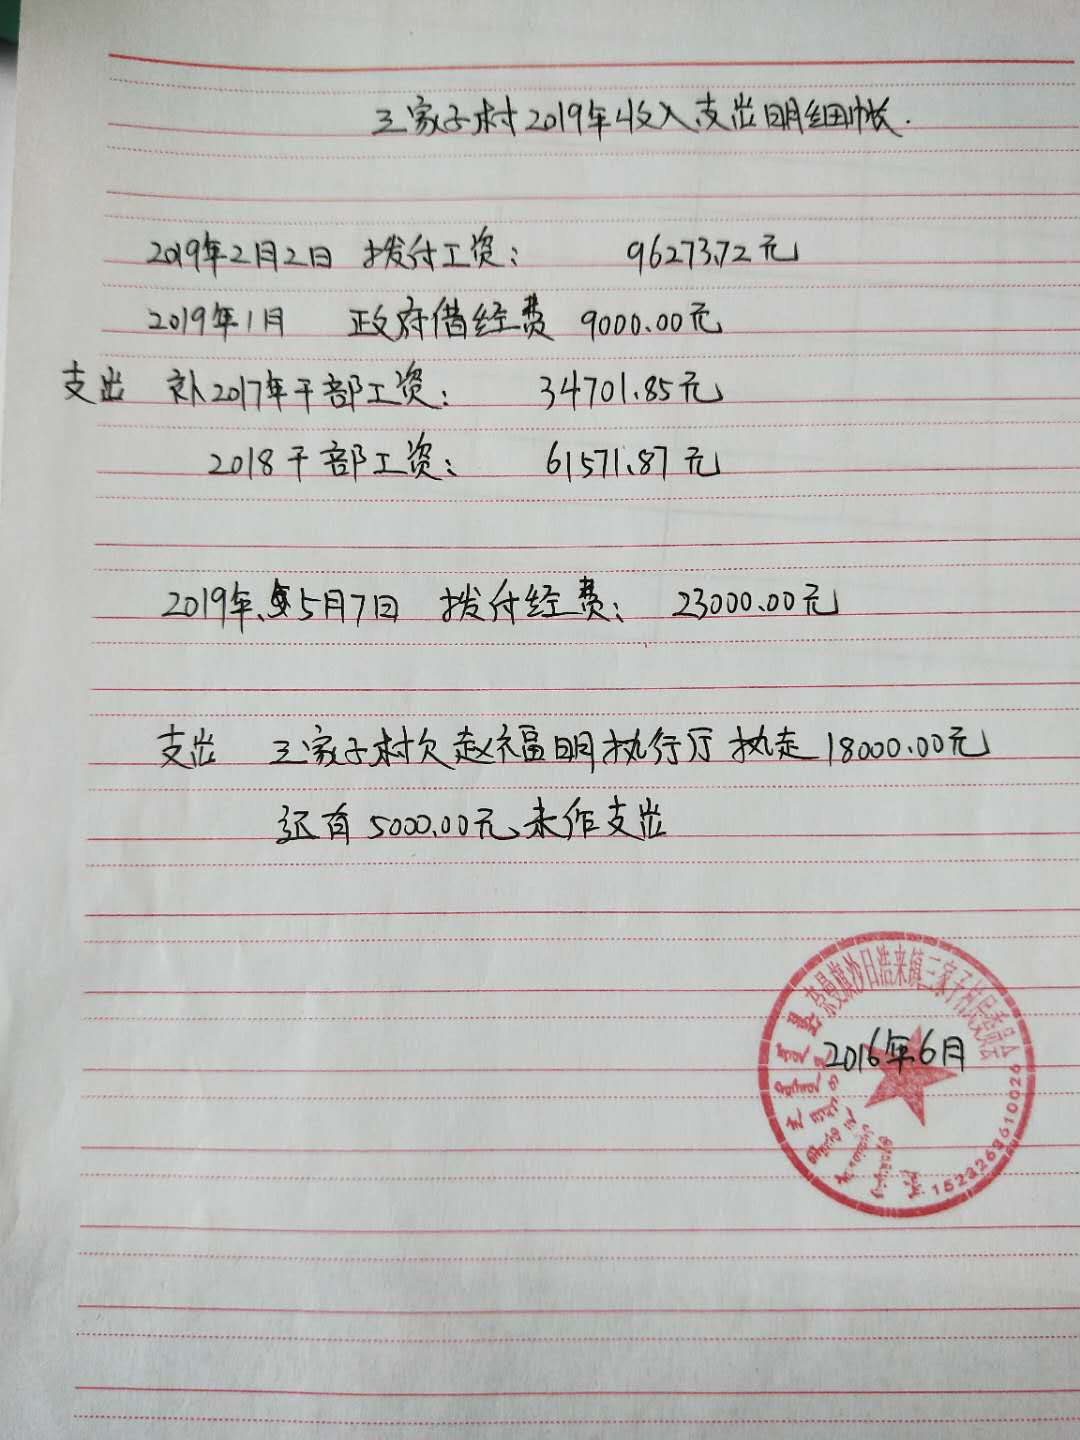 三家子村2019年收入支出明细帐.
2019年2月2日 拨付工资: 96273.72元
2019年1月 政府借经费 9000.00元
支出 补2017年干部工资: 34701.85元
2018干部工资: 61571.87元
2019年5月7日 拨付经费: 23000.00元
支出 三家子村欠赵福明执行厅执走18000.00元
还有5000.00元未作支出
奈曼旗沙日浩来镇三家子村民委员会
2016年6月
1523263610026